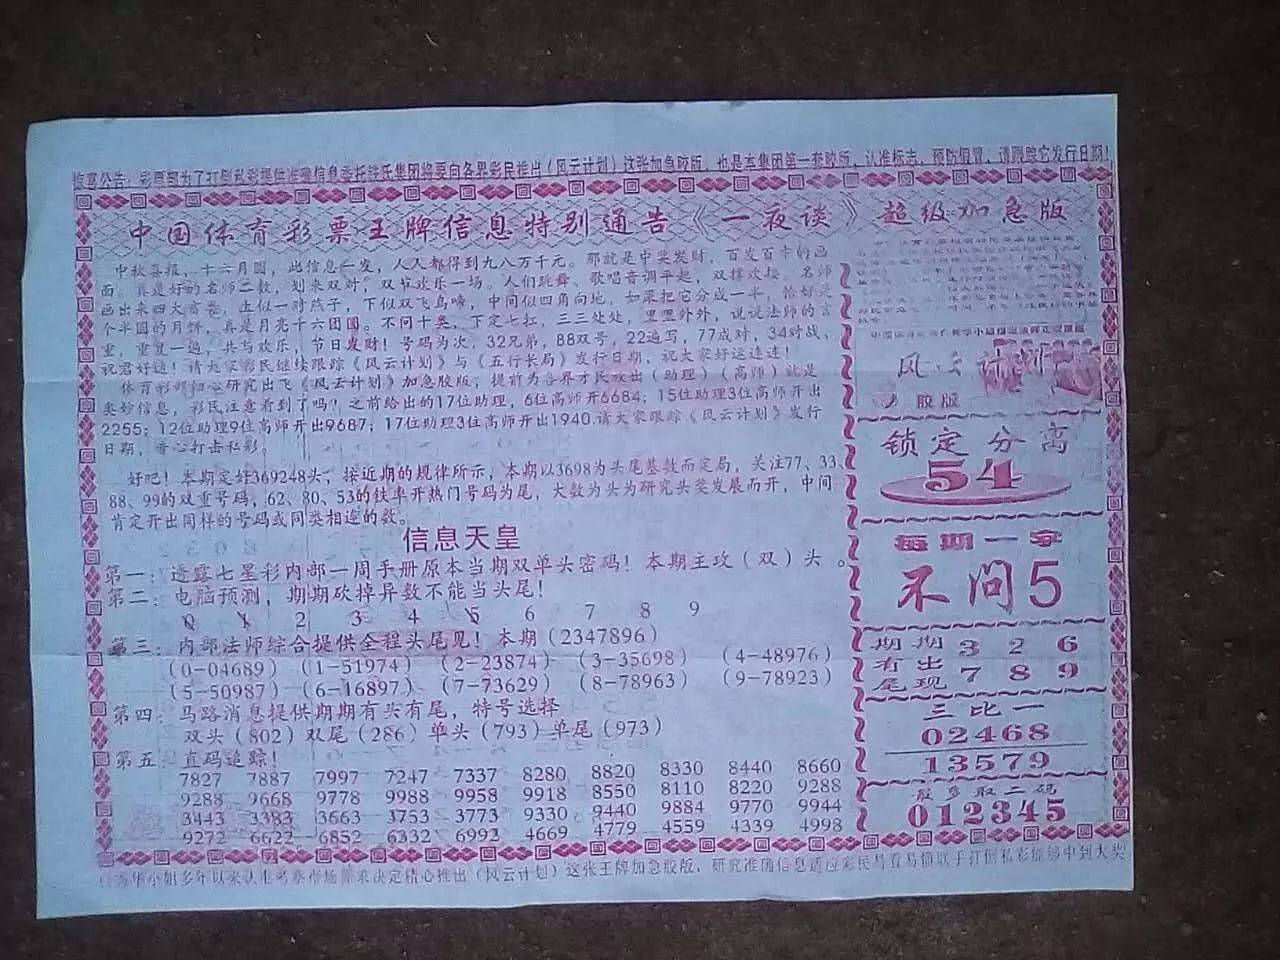 惊喜公告：彩票部为了打倒私彩提供准确信息委托 集团将要向各界彩民推出（风云计划）这张加急胶版，也是本集团第一套胶版，认准标志，预防假冒，请跟踪它发行日期！
中国体育彩票王牌信息特别通告《一夜谈》超级加急版
中秋喜报，十六月圆，此信息一发，人人都得到九八万千元。那就是中奖发财，百发百中的画
面。真是好的名师二数，划来双对，双节欢乐一场。人们玩舞、歌唱音调平起，双撑欢接。名师
画出来四大 卷，上似一对燕子，下似双飞鸟啼，中间似四角向地，如果把它分成一半，恰好是
个半圆的月饼，真是月亮十六团圆。不问十类，下定七扛，三三处处，里照外外，说说法师的言
重，重复一遍，共与欢乐，节日发财！号码为次，32兄弟，88双号，22遍写，77成对，34对战，
祝君好运！请大家彩民继续跟踪《风云计划》与《五行长局》发行日期，祝大家好运连连！
体育彩 细心研究出飞《风云计划》加急胶版，提前为各界才民放出（助理）（高师）就是
奥妙信息，彩民注意看到了吗？之前给出的17位助理，6位高师开6684；15位助理3位高师开出
2255；12位助理9位高师开出9687；17位助理3位高师开出1940.请大家跟踪《风云计划》发行
日期，齐心打击私彩。
好吧！本期定好369248头，接近期的规律所示，本期以3698为头尾基数而定局，关注77、33
88、99的双重号码，62、80、53的铁率开热门号码为尾，大数为头为研究头奖发展而开，中间
肯定开出同样的号码或同类相连的数。
信息天皇
第一：透露七星彩内部一周手册原本当期双单头密码！本期主攻（双）头。
第二：电脑预测，期期砍掉异数不能当头尾！
0 1 2 3 4 5 6 7 8 9
第三：内部法师综合提供全程头尾见！本期（2347896）
（0-04689）（1-51974）（2-23874）（3-35698）（4-48976）
（5-50987）（6-16897）（7-73629）（8-78963）（9-78923）
第四：马路消息提供期期有头有尾，特号选择
双头（802）双尾（286）单头（793）单尾（973）
第五：直码追踪！
7827 7887 7997 7247 7337 8280 8820 8330 8440 8660
9288 9668 9778 9988 9958 9918 8550 8110 8220 9288
3443 3383 3663 3753 3773 9330 9440 9884 9770 9944
9272 6622 6852 6332 6992 4669 4779 4559 4339 4998
风云计划
胶版
锁定分离
54
每期一字
不问5
期期有出尾现
3 2 6
7 8 9
三比一
02468
13579
最多取二码
012345
小姐多年以来认准 彩市场需求决定精心推出（风云计划）这张王牌加急胶版，研究准确信息适应彩民易看易懂联手打倒私彩能够中到大奖